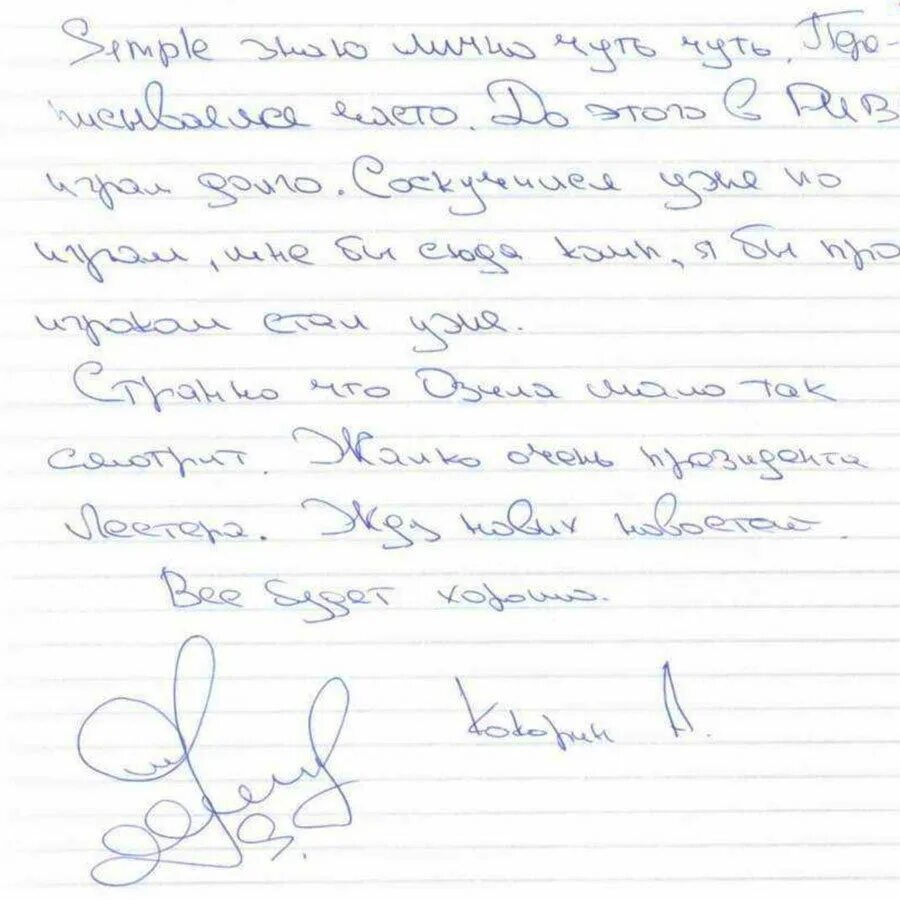 Simple знаю лично чуть чуть. Пере-
писываемся часто. До этого в PUB
играл долго. Соскучился уже по
играм, мне бы сюда комп, я бы про
игроком стал уже.
Странно что Озила мало так
смотрит. Жалко очень президента
Лестера. Жду новых новостей.
Все будет хорошо.
Кокорин А.